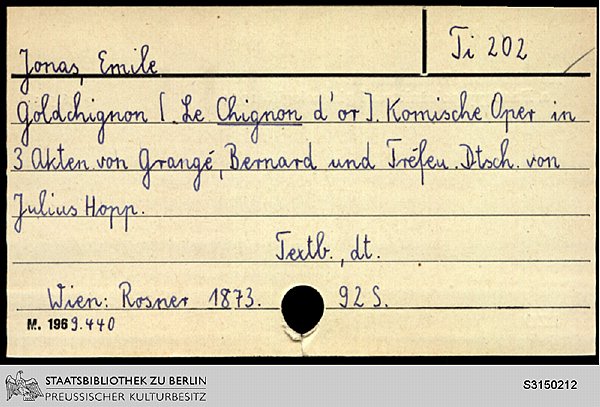 Jonas, Emile
Ti 202
Goldchignon [. Le Chignon d'or]. Komische Oper in
3 Akten von Grangé, Bernard und Tréfeu. Dtsch. von
Julius Hopp.
Textb., dt.
Wien: Rosner 1873. 92 S.
M. 1969.440
STAATSBIBLIOTHEK ZU BERLIN
PREUSSISCHER KULTURBESITZ
S3150212